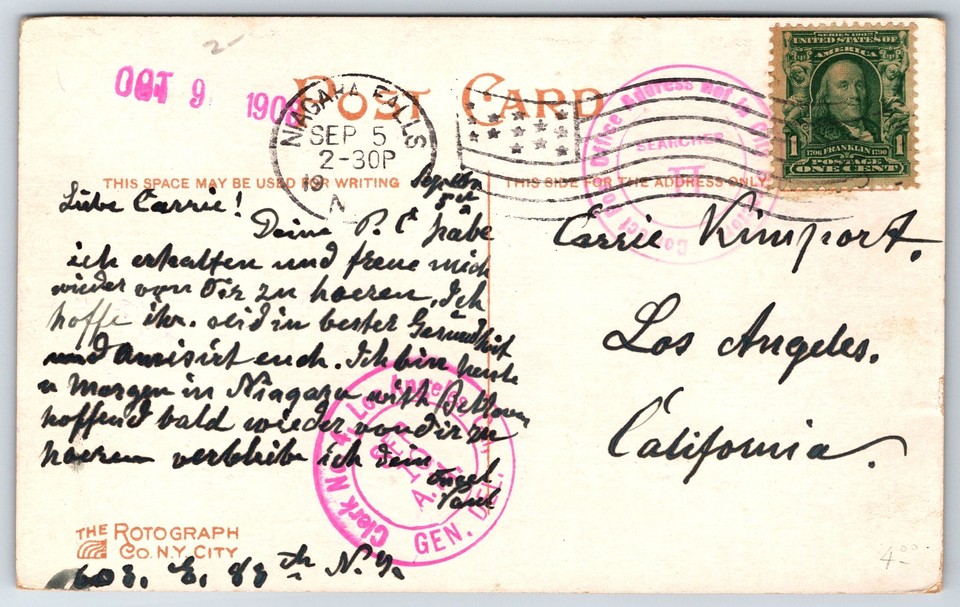 OCT 9 1906
POST CARD
NIAGARA FALLS
SEP 5
2-30P
THIS SPACE MAY BE USED FOR WRITING
THIS SIDE FOR THE ADDRESS ONLY
SERIES 1902
UNITED STATES OF AMERICA
1706 FRANKLIN 1790
1 POSTAGE 1
ONE CENT
Office Address Not in City
SEARCHER
Liebe Carrie!
Deine P. C habe
ich erhalten und freue mich
wieder von Dir zu hoeren. Ich
hoffe ihr seid in bester Gesundheit
und amisirt euch. Ich bin heute
Morgen in Niagara with
hoffend bald wieder von dir zu
hoeren verbleibe ich dein
Paul
Carrie Kimport.
Los Angeles.
California.
Clerk No. 4 Los Angeles
SEP
10
A.M.
GEN. DEL.
THE ROTOGRAPH
CO. N.Y. CITY
603. E. 88th N.Y.
4.00